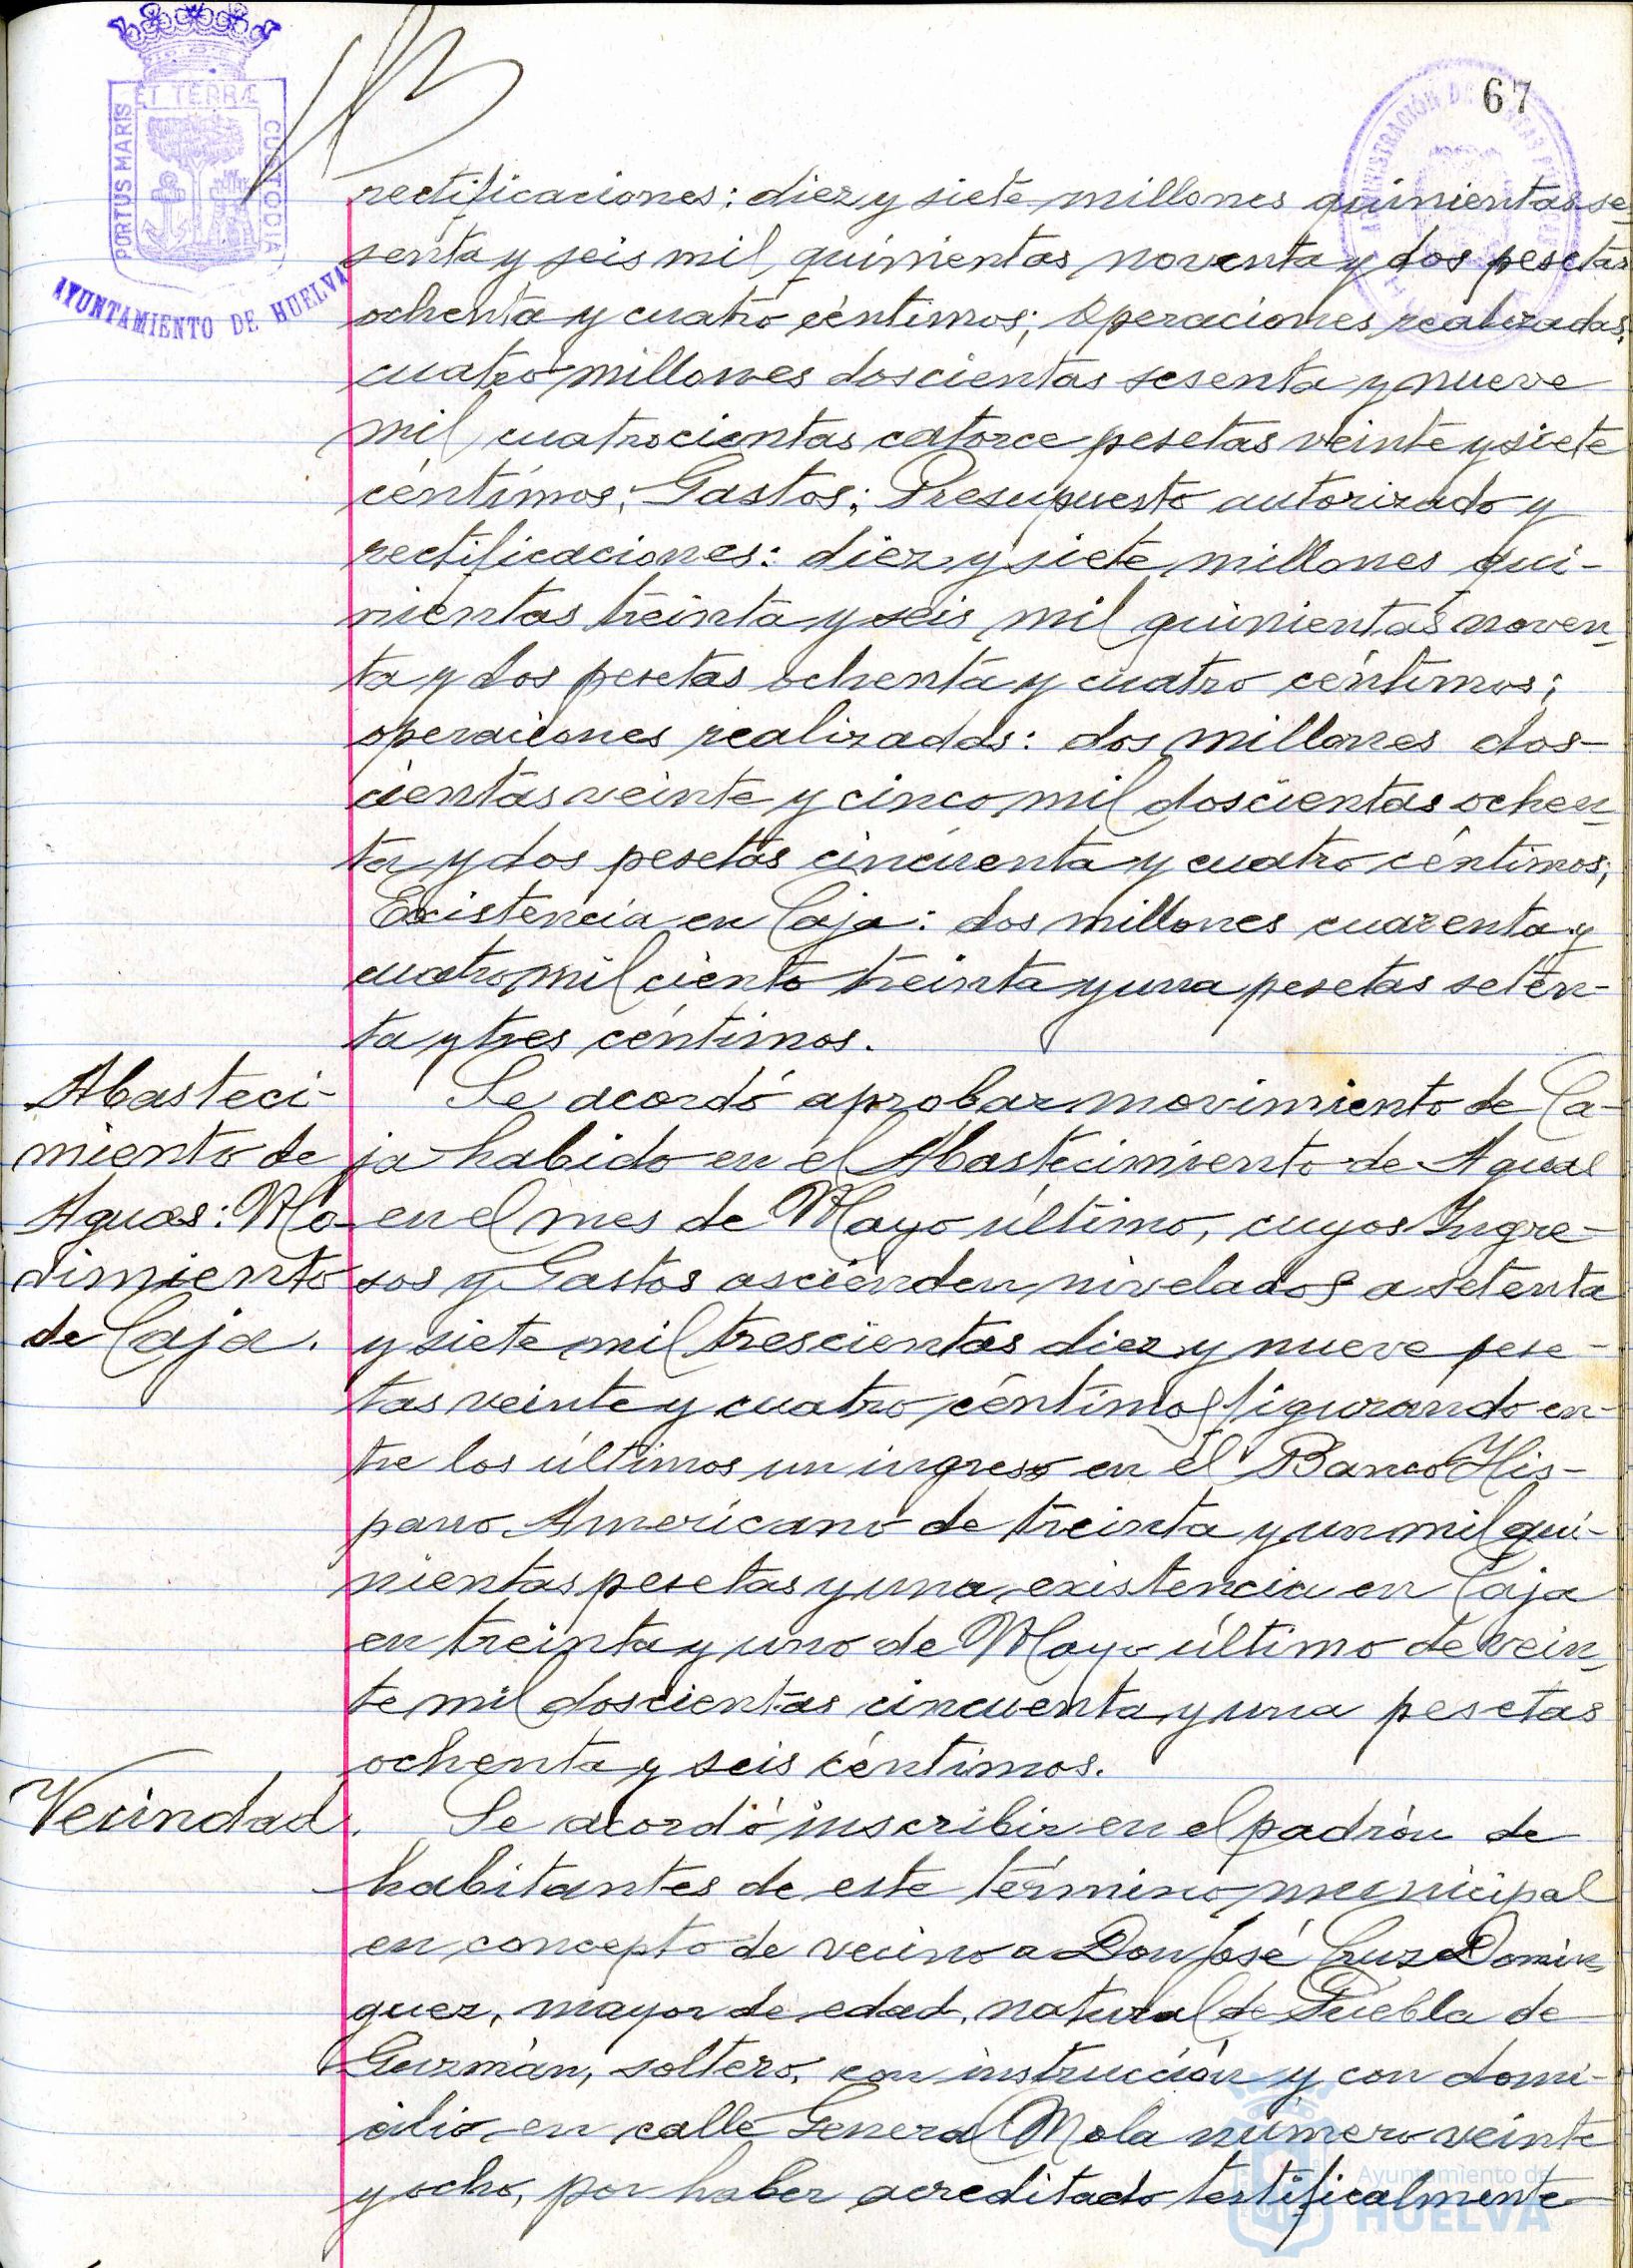 67
ET TERRÆ
PORTUS MARIS
CUSTODIA
AYUNTAMIENTO DE HUELVA
rectificaciones: diez y siete millones quinientas se-
senta y seis mil quinientas noventa y dos pesetas
ochenta y cuatro céntimos; Operaciones realizadas,
cuatro millones doscientas sesenta y nueve
mil cuatrocientas catorce pesetas veinte y siete
céntimos; Gastos; Presupuesto autorizado y
rectificaciones: diez y siete millones qui-
nientas treinta y seis mil quinientas noven-
ta y dos pesetas ochenta y cuatro céntimos;
operaciones realizadas: dos millones dos-
cientas veinte y cinco mil doscientas ochen-
ta y dos pesetas cincuenta y cuatro céntimos;
Existencia en Caja: dos millones cuarenta y
cuatro mil ciento treinta y una pesetas seten-
ta y tres céntimos.
Abasteci-
miento de
Aguas: Mo-
vimiento
de Caja.
Se acordó aprobar movimiento de Ca-
ja habido en el Abastecimiento de Aguas
en el mes de Mayo último, cuyos Ingre-
sos y Gastos ascienden nivelados a setenta
y siete mil trescientas diez y nueve pese-
tas veinte y cuatro céntimos figurando en-
tre los últimos un ingreso en el Banco His-
pano Americano de treinta y un mil qui-
nientas pesetas y una existencia en Caja
en treinta y uno de Mayo último de vein-
te mil doscientas cincuenta y una pesetas
ochenta y seis céntimos.
Vecindad.
Se acordó inscribir en el padrón de
habitantes de este término municipal
en concepto de vecino a Don José Cruz Domin-
guez, mayor de edad, natural de Puebla de
Guzmán, soltero, con instrucción y con domi-
cilio en calle General Mola número veinte
y ocho, por haber acreditado testificalmente
Ayuntamiento de
HUELVA